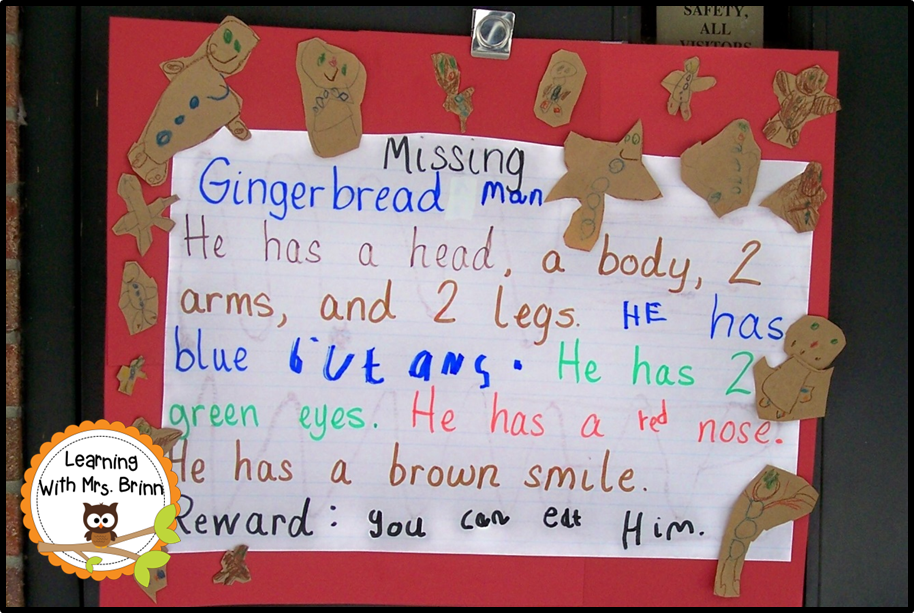 SAFETY,
ALL
VISITORS
Missing
Gingerbread man
He has a head, a body, 2
arms, and 2 legs. HE has
blue butans. He has 2
green eyes. He has a red nose.
He has a brown smile.
Reward: you can eat Him.
Learning
With Mrs. Brinn